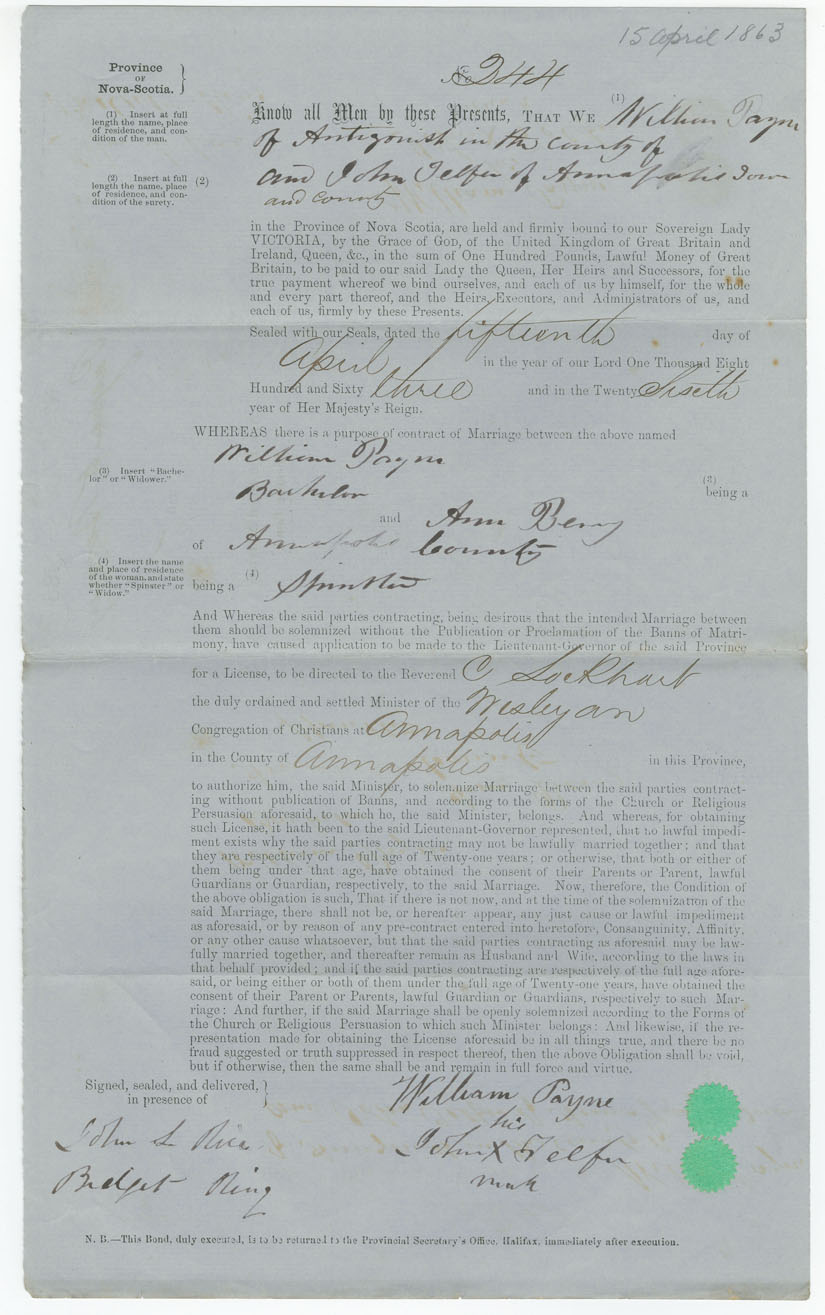 15 April 1863
Province
OF
Nova-Scotia.
No 244
(1) Insert at full
length the name, place
of residence, and con-
dition of the man.
Know all Men by these Presents, THAT WE (1) William Payne
of Antigonish in the County of
(2) Insert at full
length the name, place
of residence, and con-
dition of the surety.
(2) and John Telfer of Annapolis Town
and County
in the Province of Nova Scotia, are held and firmly bound to our Sovereign Lady
VICTORIA, by the Grace of GOD, of the United Kingdom of Great Britain and
Ireland, Queen, &c., in the sum of One Hundred Pounds, Lawful Money of Great
Britain, to be paid to our said Lady the Queen, Her Heirs and Successors, for the
true payment whereof we bind ourselves, and each of us by himself, for the whole
and every part thereof, and the Heirs, Executors, and Administrators of us, and
each of us, firmly by these Presents.
Sealed with our Seals, dated the fifteenth day of
April in the year of our Lord One Thousand Eight
Hundred and Sixty three and in the Twenty Sixth
year of Her Majesty's Reign.
WHEREAS there is a purpose of contract of Marriage between the above named
William Payne
(3) Insert "Bache-
lor" or "Widower."
(3)
Bachelor being a
and Ann Berry
of Annapolis County
(4) Insert the name
and place of residence
of the woman, and state
whether "Spinster" or
"Widow."
being a (4) Spinster
And Whereas the said parties contracting, being desirous that the intended Marriage between
them should be solemnized without the Publication or Proclamation of the Banns of Matri-
mony, have caused application to be made to the Lieutenant-Governor of the said Province
for a License, to be directed to the Reverend C Lockhart
the duly ordained and settled Minister of the Wesleyan
Congregation of Christians at Annapolis
in the County of Annapolis in this Province,
to authorize him, the said Minister, to solemnize Marriage between the said parties contract-
ing without publication of Banns, and according to the forms of the Church or Religious
Persuasion aforesaid, to which he, the said Minister, belongs. And whereas, for obtaining
such License, it hath been to the said Lieutenant-Governor represented, that no lawful impedi-
ment exists why the said parties contracting may not be lawfully married together; and that
they are respectively of the full age of Twenty-one years; or otherwise, that both or either of
them being under that age, have obtained the consent of their Parents or Parent, lawful
Guardians or Guardian, respectively, to the said Marriage. Now, therefore, the Condition of
the above obligation is such, That if there is not now, and at the time of the solemnization of the
said Marriage, there shall not be, or hereafter appear, any just cause or lawful impediment
as aforesaid, or by reason of any pre-contract entered into heretofore, Consanguinity, Affinity,
or any other cause whatsoever, but that the said parties contracting as aforesaid may be law-
fully married together, and thereafter remain as Husband and Wife, according to the laws in
that behalf provided; and if the said parties contracting are respectively of the full age afore-
said, or being either or both of them under the full age of Twenty-one years, have obtained the
consent of their Parent or Parents, lawful Guardian or Guardians, respectively to such Mar-
riage: And further, if the said Marriage shall be openly solemnized according to the Forms of
the Church or Religious Persuasion to which such Minister belongs: And likewise, if the re-
presentation made for obtaining the License aforesaid be in all things true, and there be no
fraud suggested or truth suppressed in respect thereof, then the above Obligation shall be void,
but if otherwise, then the same shall be and remain in full force and virtue.
Signed, sealed, and delivered,
in presence of
William Payne
his
John X Telfer
mark
John L Rice
Bridget Ring
N. B.—This Bond, duly executed, is to be returned to the Provincial Secretary's Office, Halifax, immediately after execution.